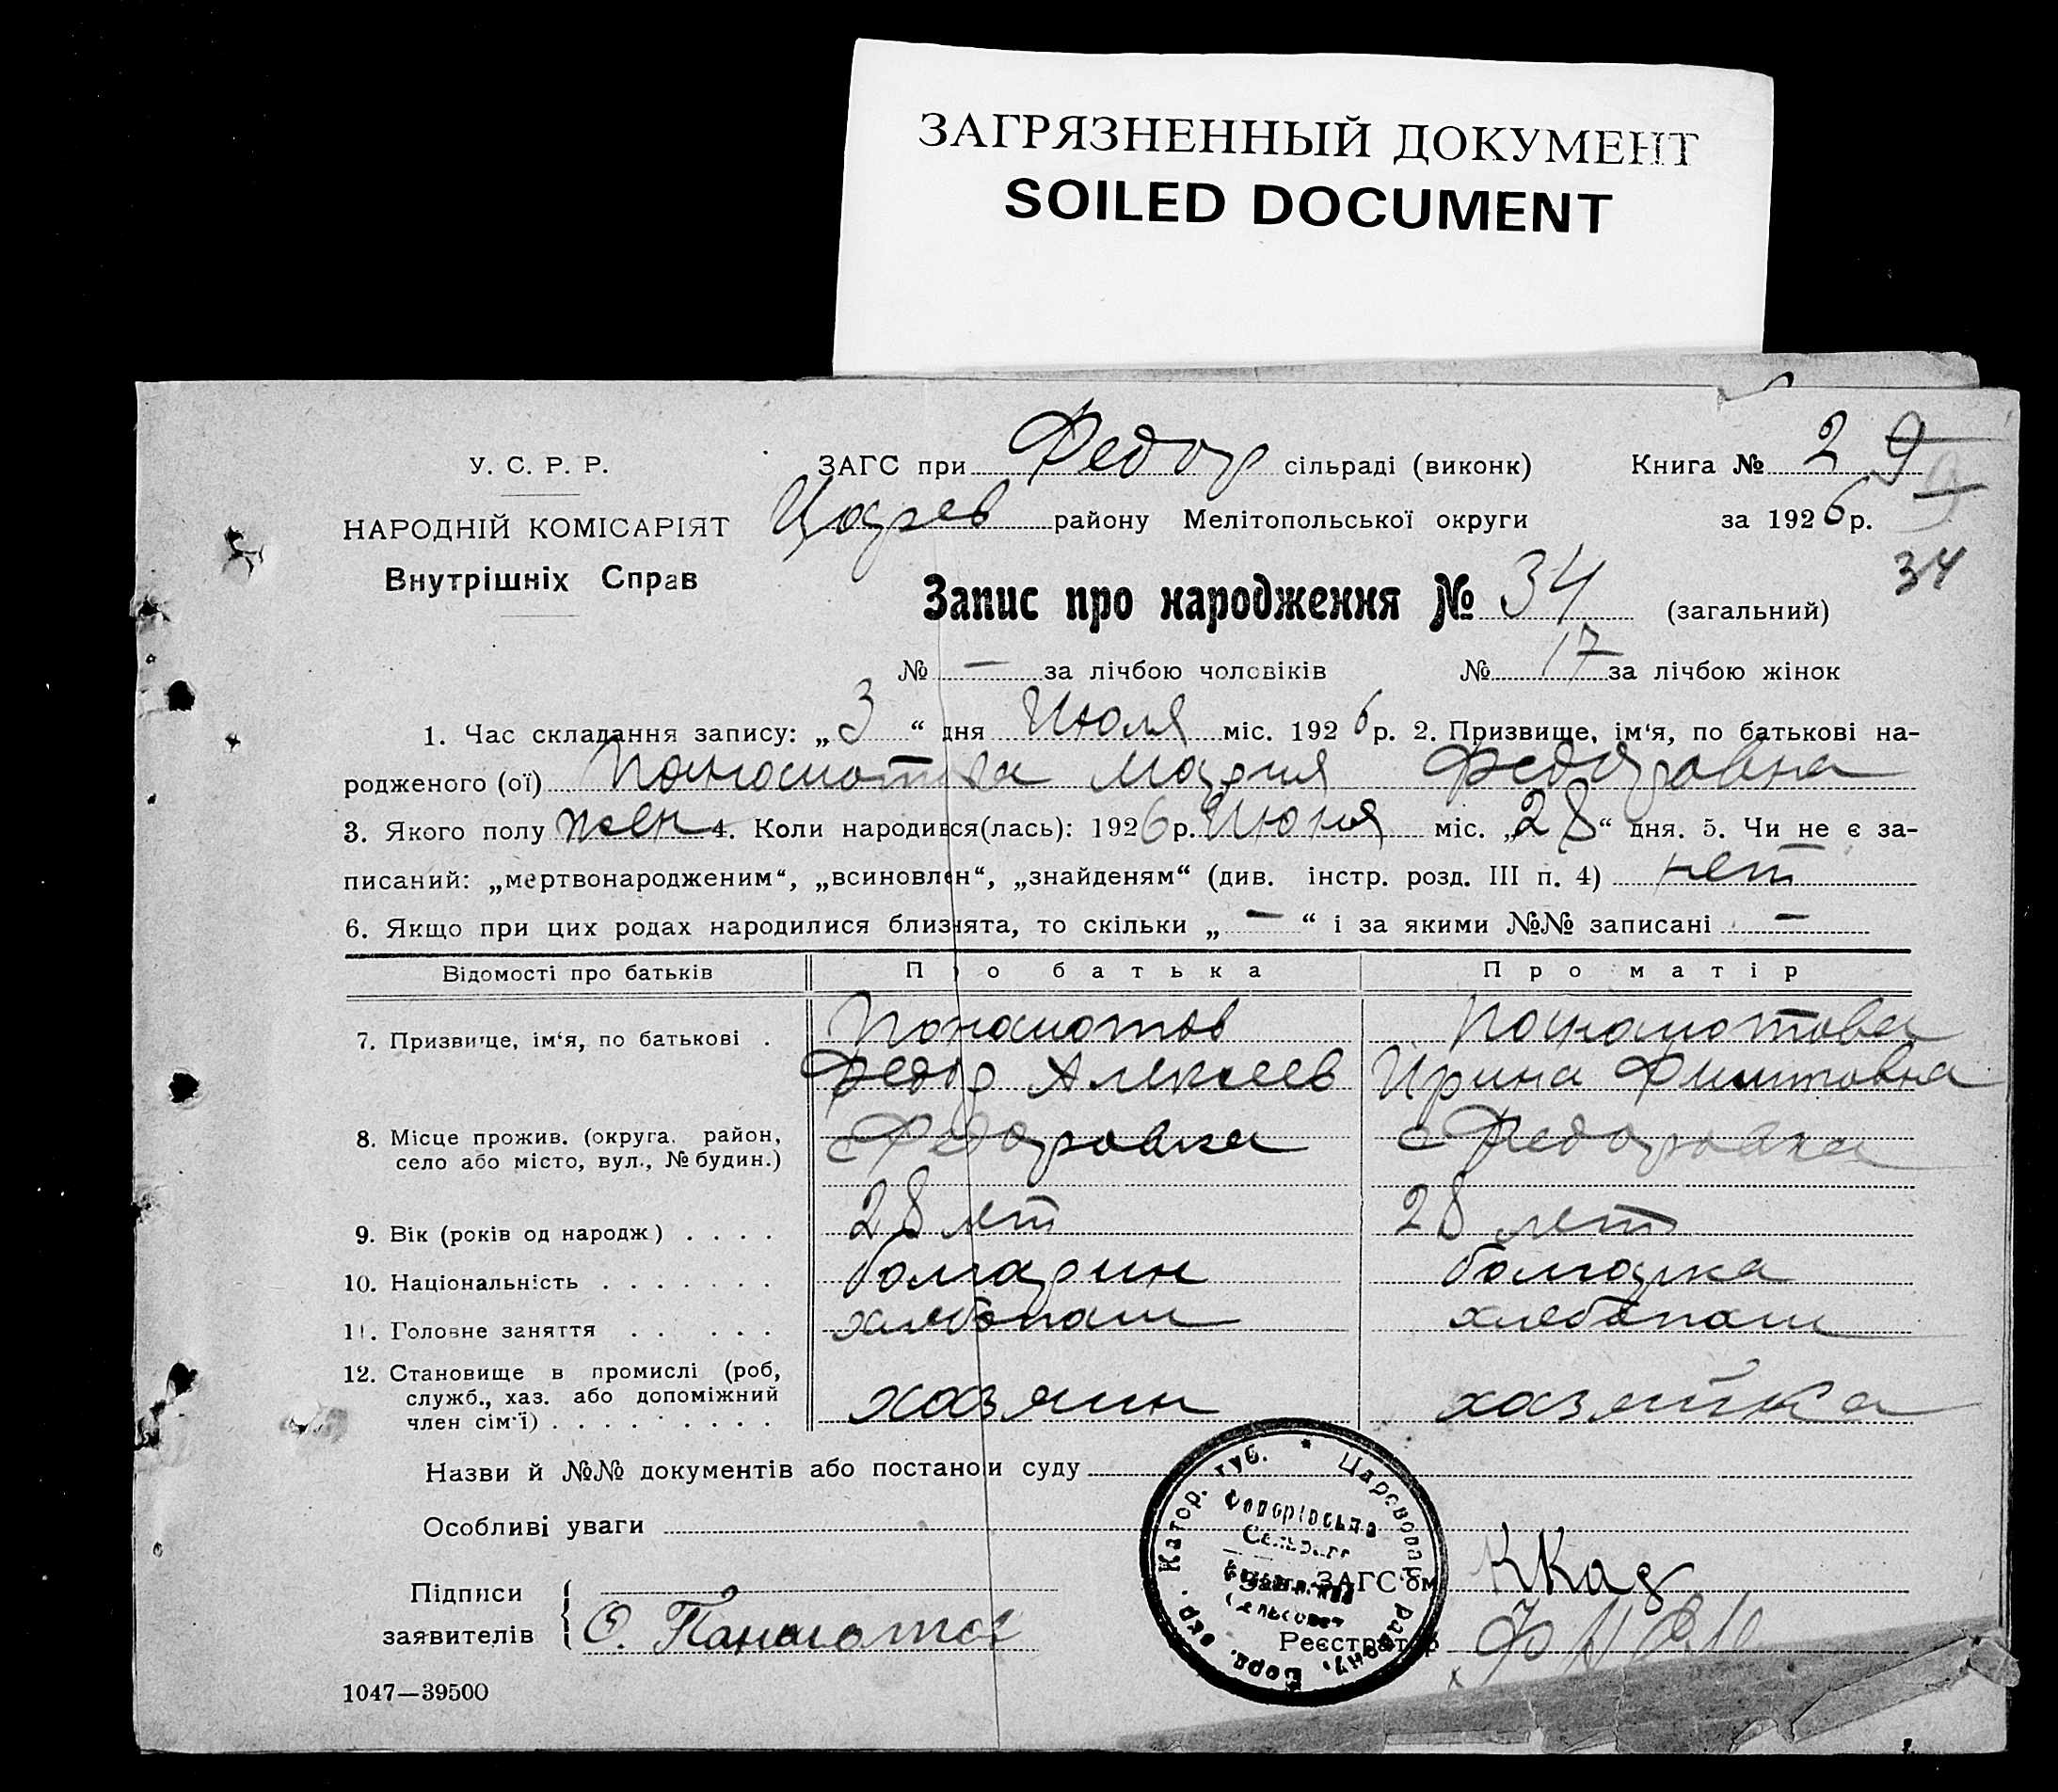 ЗАГРЯЗНЕННЫЙ ДОКУМЕНТ
SOILED DOCUMENT
У. С. Р. Р.
НАРОДНІЙ КОМІСАРІЯТ
Внутрішніх Справ
ЗАГС при Федор сільраді (виконк)
Книга № 2
9
района Мелітопольської округи
за 1926 р.
34
Запис про народження № 34 (загальний)
№ — за лічбою чоловіків № 17 за лічбою жінок
1. Час складання запису: „3“ дня Июля міс. 1926 р. 2. Призвище, ім‘я, по батькові на-
родженого (ої) Мария Федоровна
3. Якого полу жен 4. Коли народився(лась): 1926 р. Июня міс. „28“ дня. 5. Чи не є за-
писаний: „мертвонародженим“, „всиновлен“, „знайденям“ (див. інстр. розд. III п. 4) нет
6. Якщо при цих родах народилися близнята, то скільки „—“ і за якими №№ записані —
Відомості про батьків
Про батька
Про матір
7. Призвище, ім‘я, по батькові .
Панаиотов
Панаиотова
Федор Алексеев
Ирина
8. Місце прожив. (округа, район,
село або місто, вул., № будин.)
с Федоровка
с Федоровка
9. Вік (років од народж) . . . .
28 лет
28 лет
10. Національність . . . . . . .
болгарин
болгарка
11. Головне заняття . . . . .
хлебопаш
хлебопаш
12. Становище в промислі (роб,
служб., хаз. або допоміжний
член сім‘ї) . . . . . . . . .
хазяин
хазяйка
Назви й №№ документів або постанови суду
Особливі уваги
Підписи
заявителів
Ф. Панаиотов
ЗАГС‘ом
Реєстратор
Цареводар. району, Берд. окр. Катер. губ.
Федорівська
1047—39500